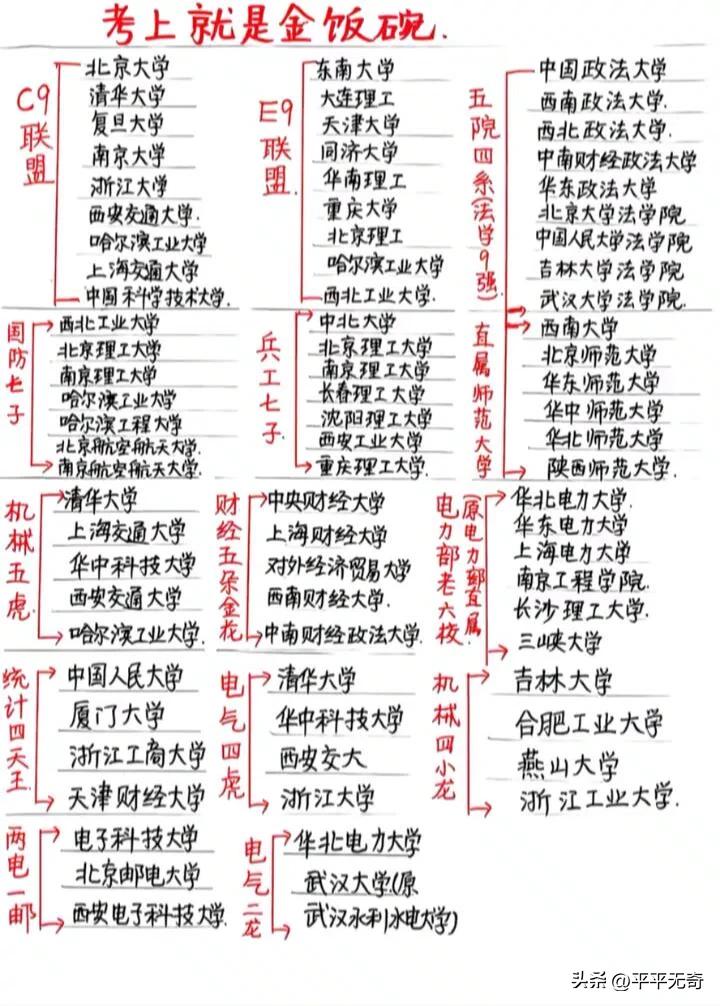 考上就是金饭碗.
C9联盟
北京大学
清华大学
复旦大学
南京大学
浙江大学
西安交通大学.
哈尔滨工业大学
上海交通大学
中国科学技术大学.
E9联盟
东南大学
大连理工
天津大学
同济大学
华南理工
重庆大学
北京理工
哈尔滨工业大学
西北工业大学.
五院四系(法学9强)
中国政法大学
西南政法大学.
西北政法大学.
中南财经政法大学
华东政法大学
北京大学法学院
中国人民大学法学院
吉林大学法学院
武汉大学法学院.
国防七子
西北工业大学
北京理工大学
南京理工大学
哈尔滨工业大学
哈尔滨工程大学
北京航空航天大学.
南京航空航天大学.
兵工七子.
中北大学
北京理工大学
南京理工大学
长春理工大学
沈阳理工大学
西安工业大学
重庆理工大学.
直属师范大学
西南大学
北京师范大学
华东师范大学
华中师范大学
华北师范大学
陕西师范大学.
机械五虎
清华大学
上海交通大学
华中科技大学
西安交通大学
哈尔滨工业大学.
财经五朵金花
中央财经大学
上海财经大学
对外经济贸易大学
西南财经大学.
中南财经政法大学
电力部老六校
(原电力部直属
华北电力大学.
华东电力大学
上海电力大学
南京工程学院.
长沙理工大学.
三峡大学
统计四天王
中国人民大学
厦门大学
浙江工商大学
天津财经大学
电气四虎
清华大学
华中科技大学
西安交大
浙江大学
机械四小龙
吉林大学
合肥工业大学
燕山大学
浙江工业大学.
两电一邮
电子科技大学
北京邮电大学
西安电子科技大学.
电气二龙
华北电力大学
武汉大学(原
武汉水利水电大学)
头条@平平无奇